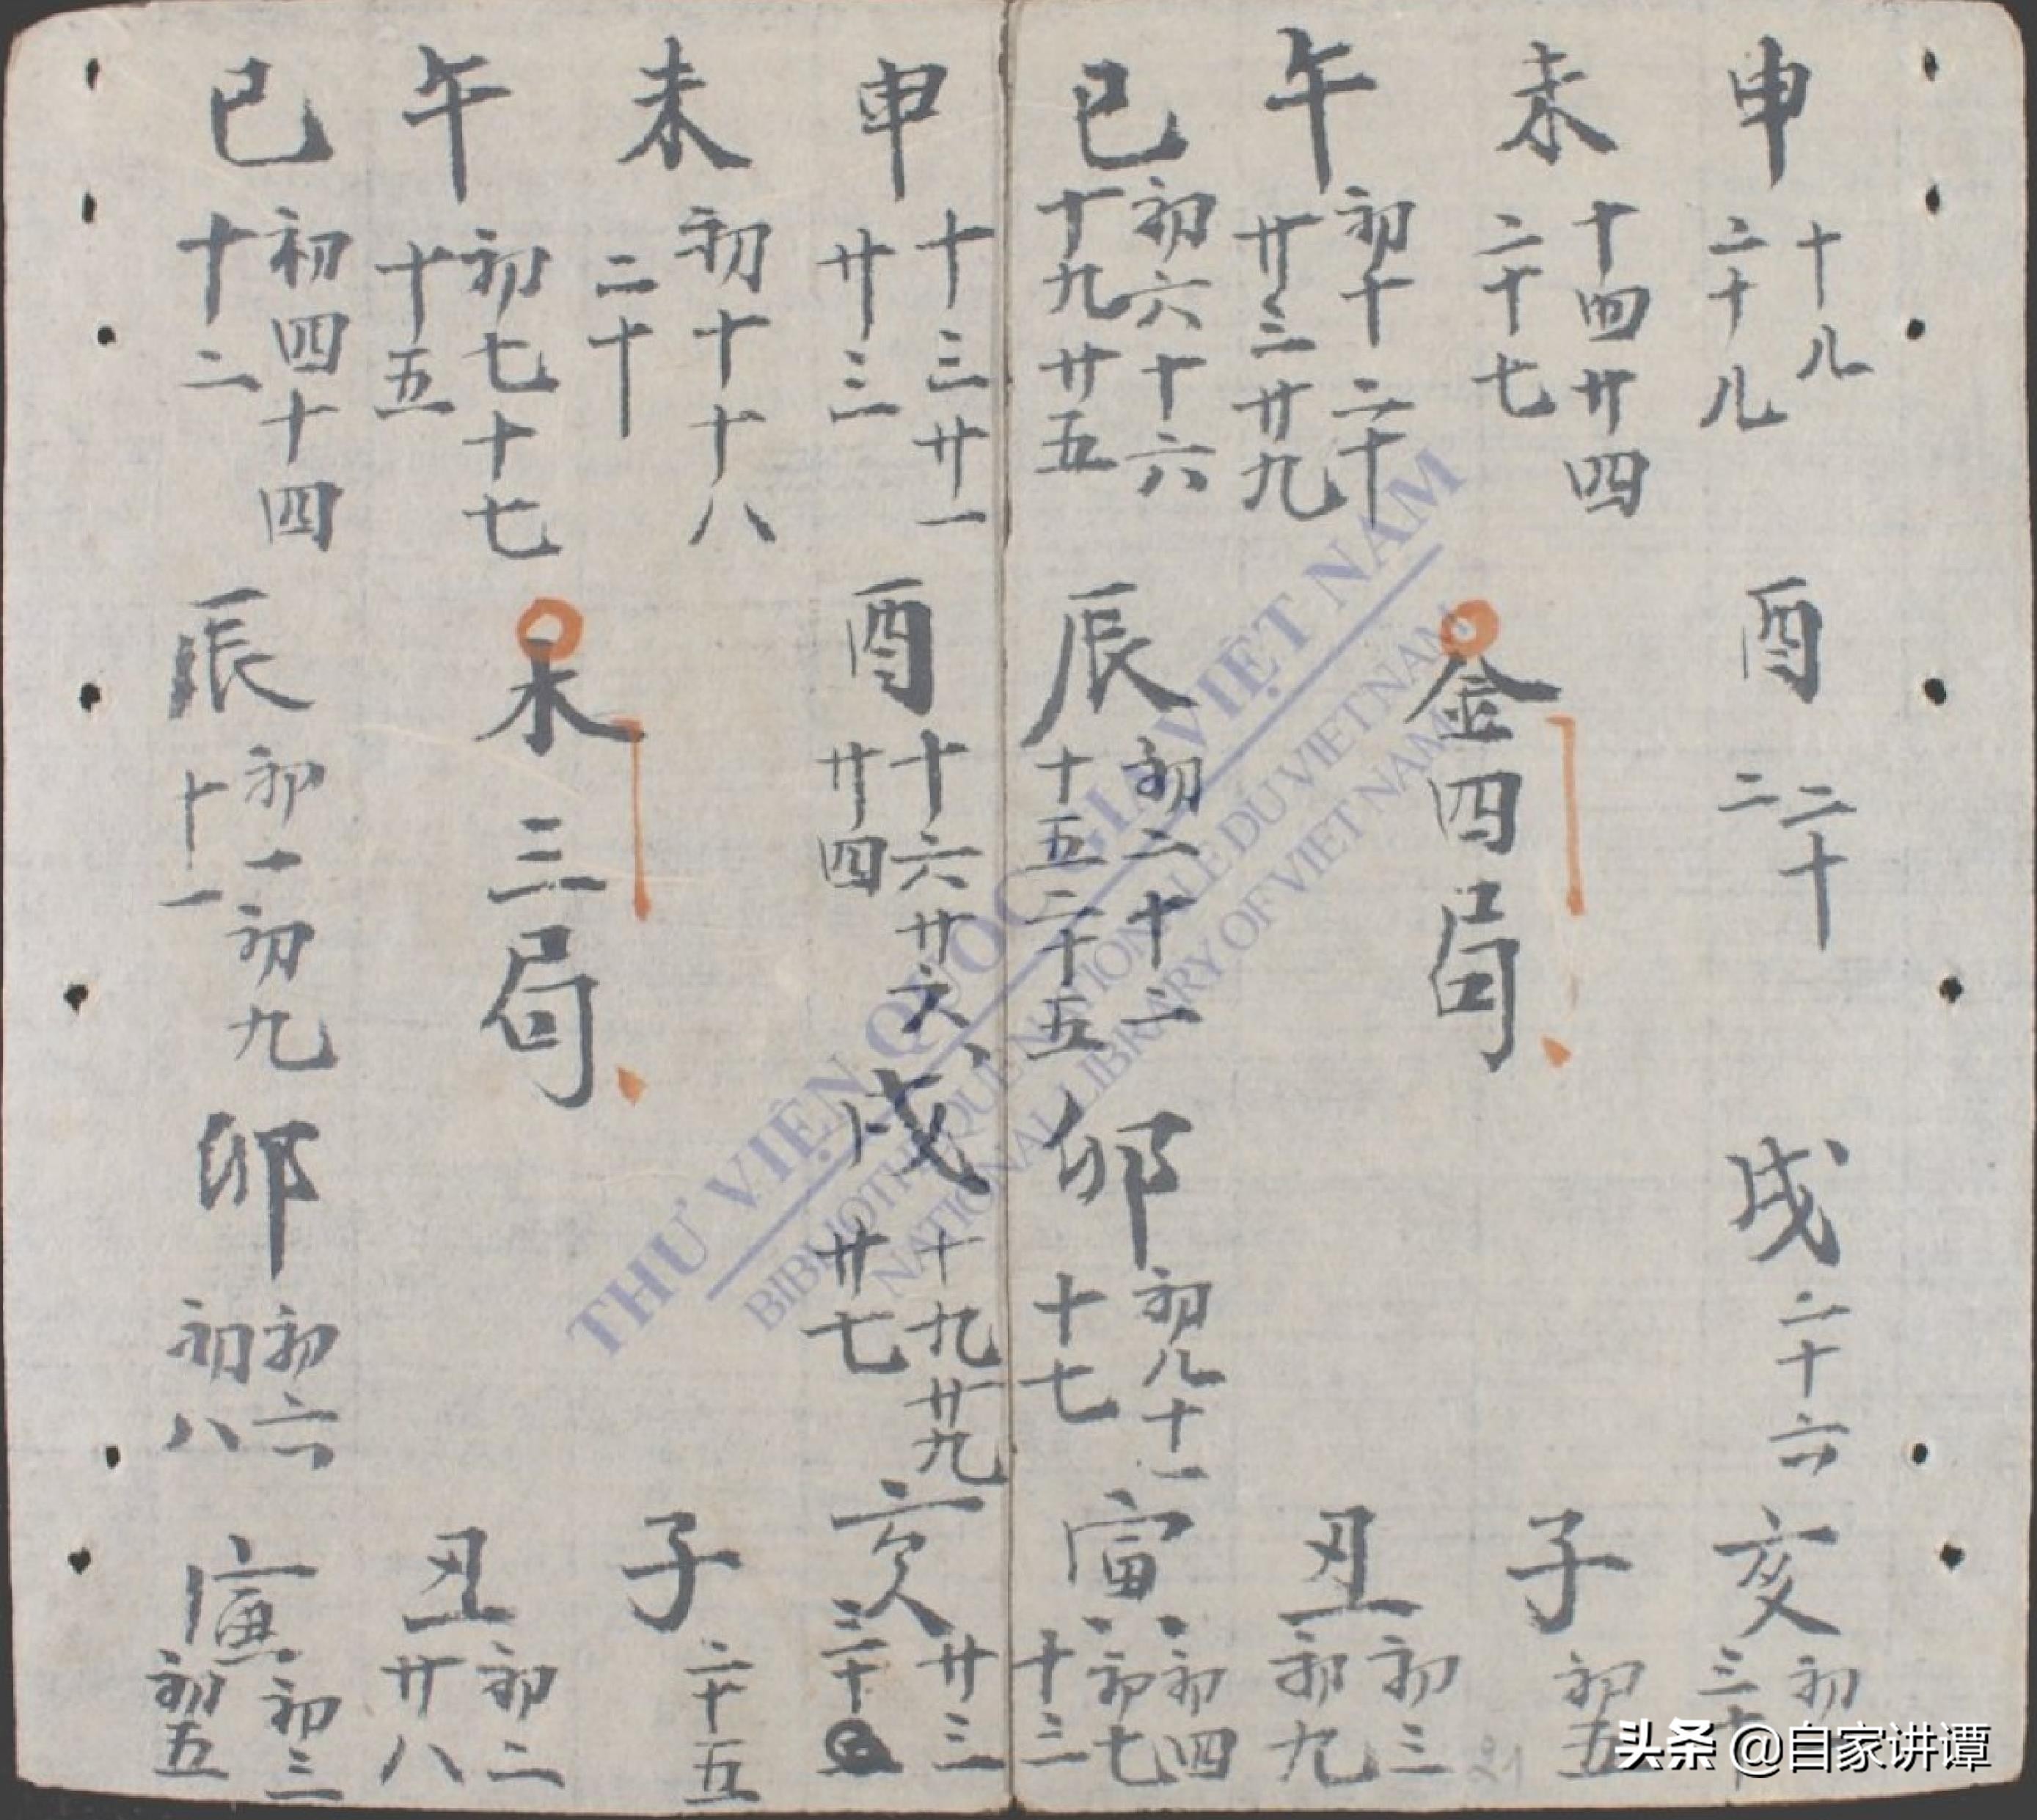 申
十八
二十八
未
十四廿四
二十七
午
初十二十
廿三廿九
巳
初六十六
十九廿五
酉
二十
二
金四局
辰
初二十二
十五二十五
戌
二十六
卯
初八十一
十七
亥
初
三十
子
初五
丑
初三
初九
寅
初四
初七
十三
申
十三廿一
廿三
未
初十十八
二十
午
初七十七
十五
巳
初四十四
十二
酉
十六廿六
廿四
木三局
辰
初一初九
十一
戌
十九廿九
廿七
卯
初六
初八
亥
廿三
三十
子
二十五
丑
初二
廿八
寅
初三
初五
THƯ VIỆN QUỐC GIA VIỆT NAM
BIBLIOTHEQUE NATIONALE DU VIET NAM
NATIONAL LIBRARY OF VIET NAM
头条 @自家讲谭